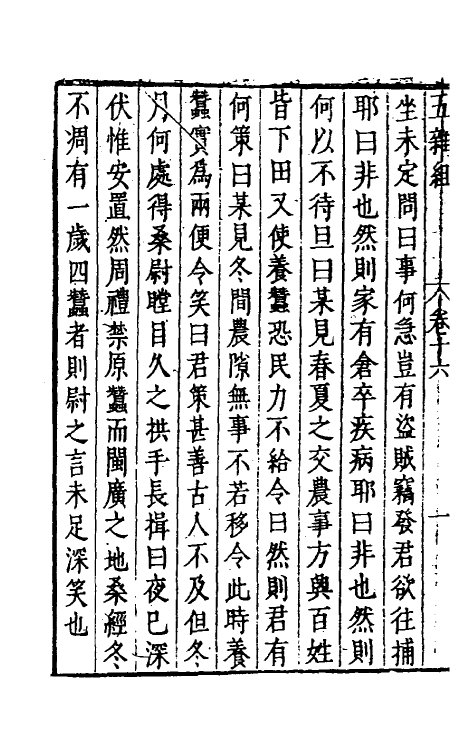 五雜組　卷十六
坐未定問曰事何急豈有盜賊竊發君欲往捕
耶曰非也然則家有倉卒疾病耶曰非也然則
何以不待旦曰某見春夏之交農事方興百姓
皆下田又使養蠶恐民力不給令曰然則君有
何策曰某見冬間農隙無事不若移令此時養
蠶實爲兩便令笑曰君策甚善古人不及但冬
月何處得桑尉瞠目久之拱手長揖曰夜已深
伏惟安置然周禮禁原蠶而閩廣之地桑經冬
不凋有一歲四蠶者則尉之言未足深笑也